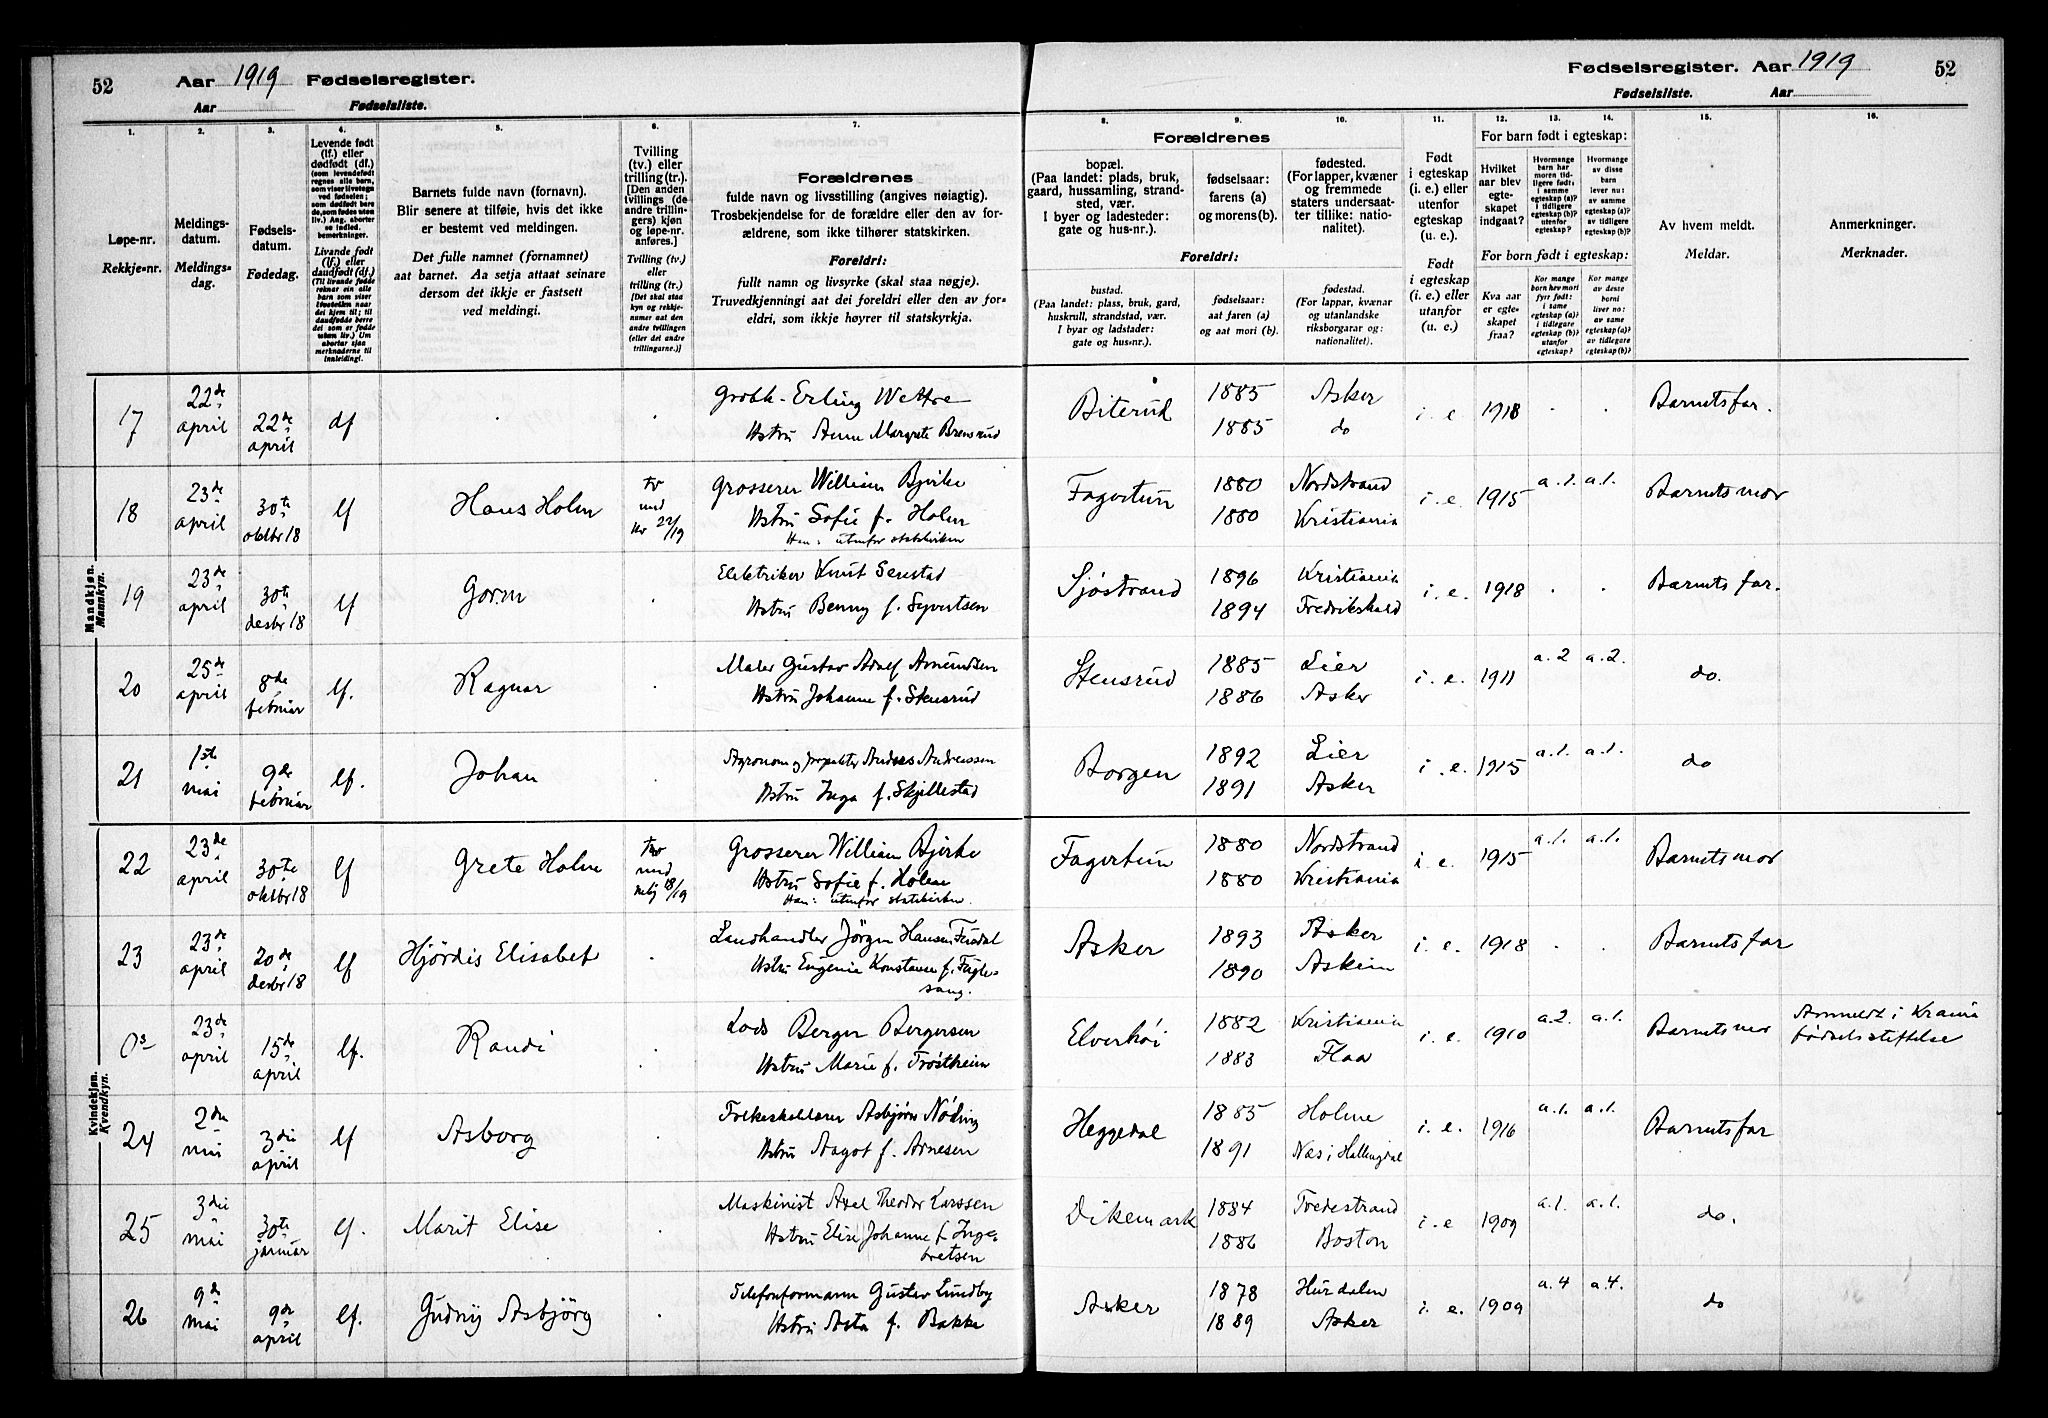 52 Aar 1919 Fødselsregister. Fødselsregister. Aar 1919 52
Aar Fødselsliste. Fødselsliste. Aar
1. 2. 3. 4. 5. 6. 7. 8. 9. 10. 11. 12. 13. 14. 15. 16.
Løpe-nr.
Rekkje-nr.
Meldings-
datum.
Meldings-
dag.
Fødsels-
datum.
Fødedag.
Levende født
(lf.) eller
dødfødt (df.)
Livande født
(lf.) eller
daudfødt (df.)
Barnets fulde navn (fornavn).
Blir senere at tilføie, hvis det ikke
er bestemt ved meldingen.
Det fulle namnet (fornamnet)
aat barnet. Aa setja attaat seinare
dersom det ikkje er fastsett
ved meldingi.
Tvilling
(tv.) eller
trilling (tr.).
[Den anden
tvillings (de
andre trillin-
gers) kjøn
og løpe-nr.
anføres.]
Tvilling (tv.)
eller
trilling (tr.)
[Det skal staa
kyn og rekkje-
numer aat den
andre tvillingen
(eller dei andre
trillingarne.)]
Forældrenes
fulde navn og livsstilling (angives nøiagtig).
Trosbekjendelse for de forældre eller den av for-
ældrene, som ikke tilhører statskirken.
Foreldri:
fullt namn og livsyrke (skal staa nøgje).
Truvedkjenningi aat dei foreldri eller den av for-
eldri, som ikkje høyrer til statskyrkja.
Forældrenes
bopæl.
(Paa landet: plads, bruk,
gaard, hussamling, strand-
sted, vær.
I byer og ladesteder:
gate og hus-nr.).
fødselsaar:
farens (a)
og morens (b).
fødested.
(For lapper, kvæner
og fremmede
staters undersaat-
ter tillike: natio-
nalitet).
Foreldri:
bustad.
(Paa landet: plass, bruk, gard,
huskrull, strandstad, vær.
I byar og ladstader:
gate og hus-nr.).
fødselsaar:
aat faren (a)
og aat mori (b).
fødestad.
(For lappar, kvænar
og utanlandske
riksborgarar og:
nationalitet).
Født
i egteskap
(i. e.) eller
utenfor
egteskap
(u. e.).
Født
i egteskap
(i. e.) eller
utanfor
egteskap
(u. e.)
For barn født i egteskap:
Hvilket
aar blev
egte-
skapet
indgaat?
Hvormange
barn har
moren tid-
ligere født:
i samme
egteskap (a)?
i tidligere
egteskap (b)?
utenfor
egteskap?
Hvormange
av disse
barn
lever nu:
av samme
egteskap (a)?
av tidligere
egteskap (b)?
For born født i egteskap:
Kva aar
er egte-
skapet
fraa?
Kor mange
born hev mori
fyrr født:
i same
egteskap (a)?
i tidlegare
egteskap (b)?
utanfor
egteskap?
Kor mange
av desse
borni
liver no:
av same
egteskap (a)?
av tidlegare
egteskap (b)?
Av hvem meldt.
Meldar.
Anmerkninger.
Merknader.
Mandkjøn.
Mannkyn.
17 22de april 22de april df Erling Wettre Hstru Anne Margrete Brensrud Biterud 1885 1885 Asker do i. e. 1918 Barnets far.
18 23de april 30te oktbr 18 lf Hans Holm tv med kv 22/19 Grosserer William Bjerke Hstru Sofie f. Holm Han: utenfor statskirken Fagertun 1880 1880 Nordstrand Kristiania i. e. 1915 a. 1. a. 1. Barnets mor
19 23de april 30te desbr 18 lf Gorm Elektriker Knut Senstad Hstru Benny f. Syvertsen Sjøstrand 1896 1894 Kristiania Fredrikshald i. e. 1918 Barnets far.
20 25de april 8de februar lf. Ragnar Maler Gustav Adolf Amundsen Hstru Johanne f. Stensrud Stensrud 1885 1886 Lier Asker i. e. 1911 a. 2 a. 2. do.
21 1ste mai 9de februar lf. Johan Agronom og Anders Andreassen Hstru Inga f. Skjellestad Borgen 1892 1891 Lier Asker i. e. 1915 a. 1. a. 1. do
Kvindekjøn.
Kvendkyn.
22 23de april 30te oktbr 18 lf Grete Holm tv med 18/19 Grosserer William Bjerke Hstru Sofie f. Holm Han: utenfor statskirken. Fagertun 1880 1880 Nordstrand Kristiania i. e. 1915 a. 1. a. 1. Barnets mor
23 23de april 20de desbr 18 lf Hjördis Elisabet Landhandler Jörgen Hansen Hstru Eugenie Konstanse f. Fugle-
sang. Asker 1893 1890 Asker Askim i. e. 1918 Barnets far
23de april 15de april lf. Randi Lods Berger Bergersen Hstru Marie f. Trøstheim Elverhöi 1882 1883 Kristiania Flaa i. e. 1910 a. 2. a. 1. Barnets mor Anmeldt i Krania fødselsstiftelse
24 2den mai 3die april lf Asborg Folkeskolelærer Asbjørn Nöding Hstru Aagot f. Arnesen Heggedal 1885 1891 Holme Nes i Hallingdal i. e. 1916 a. 1. a. 1. Barnets far
25 3die mai 30te januar lf. Marit Elise Maskinist Axel Theodor Larssen Hstru Elise Johanne f. Inge-
bretsen Dikemark 1884 1886 Tvedestrand Boston i. e 1909 a. 1. a. 1. do.
26 9de mai 9de april lf. Gudny Asbjörg Telefonformann Gustav Lundby Hstru Asta f. Bakke Asker 1878 1889 Hurdalen Asker i. e. 1909 a. 4 a. 4. do